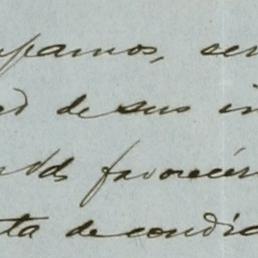 upamos, ser
ed de sus in
Vds favorecer
ta de condic